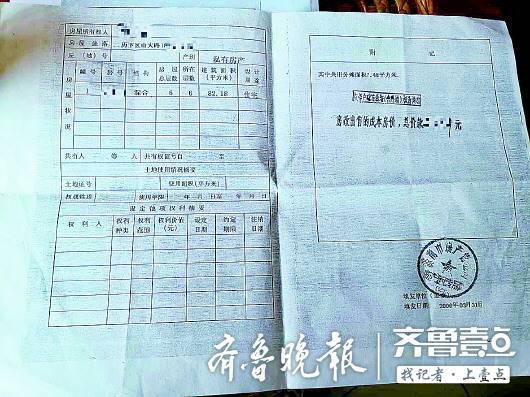 房屋所有权人
房屋坐落 历下区山大路
丘(地)号 产别 私有房产
幢号 房号 结构 房屋总层数 所在层数 建筑面积(平方米) 设计用途
房屋状况
混合 6 6 82.18 住宅
共有人 等 人 共有权证号自 至
土地使用情况摘要
土地证号 使用面积(平方米)
权属性质 使用年限 年 月 日至 年 月 日
设定他项权利摘要
权利人 权利种类 权利范围 权利价值(元) 设定日期 约定期限 注销日期
附记
其中共用分摊面积7.48平方米。
房改出售的成本房价,总价款 元
填发单位(盖章)
填发日期:2000年03月31日
齐鲁晚报
齐鲁壹点
找记者·上壹点